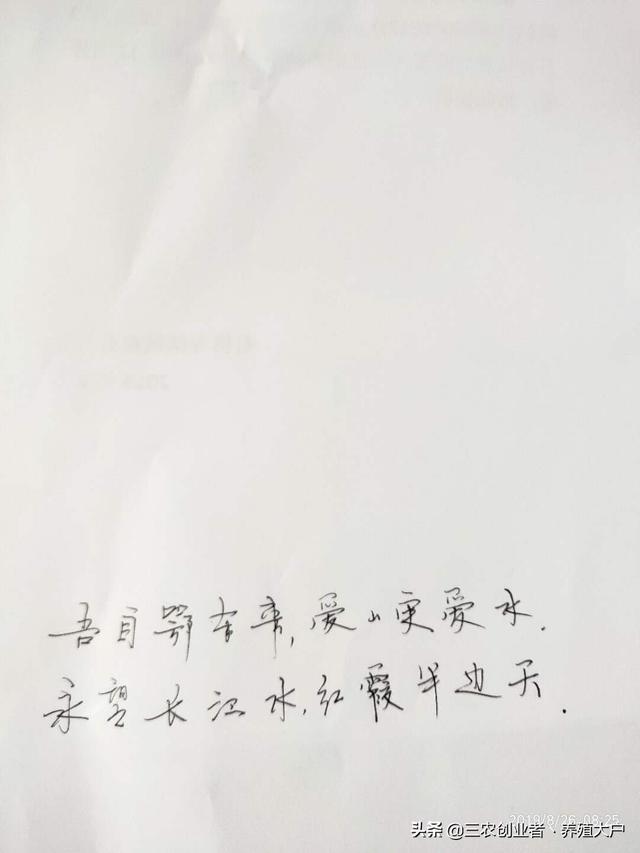 吾自鄂东来,爱山更爱水.
永望长江水,红霞半边天.
2018/8/26 08:25
头条 @三农创业者·养殖大户